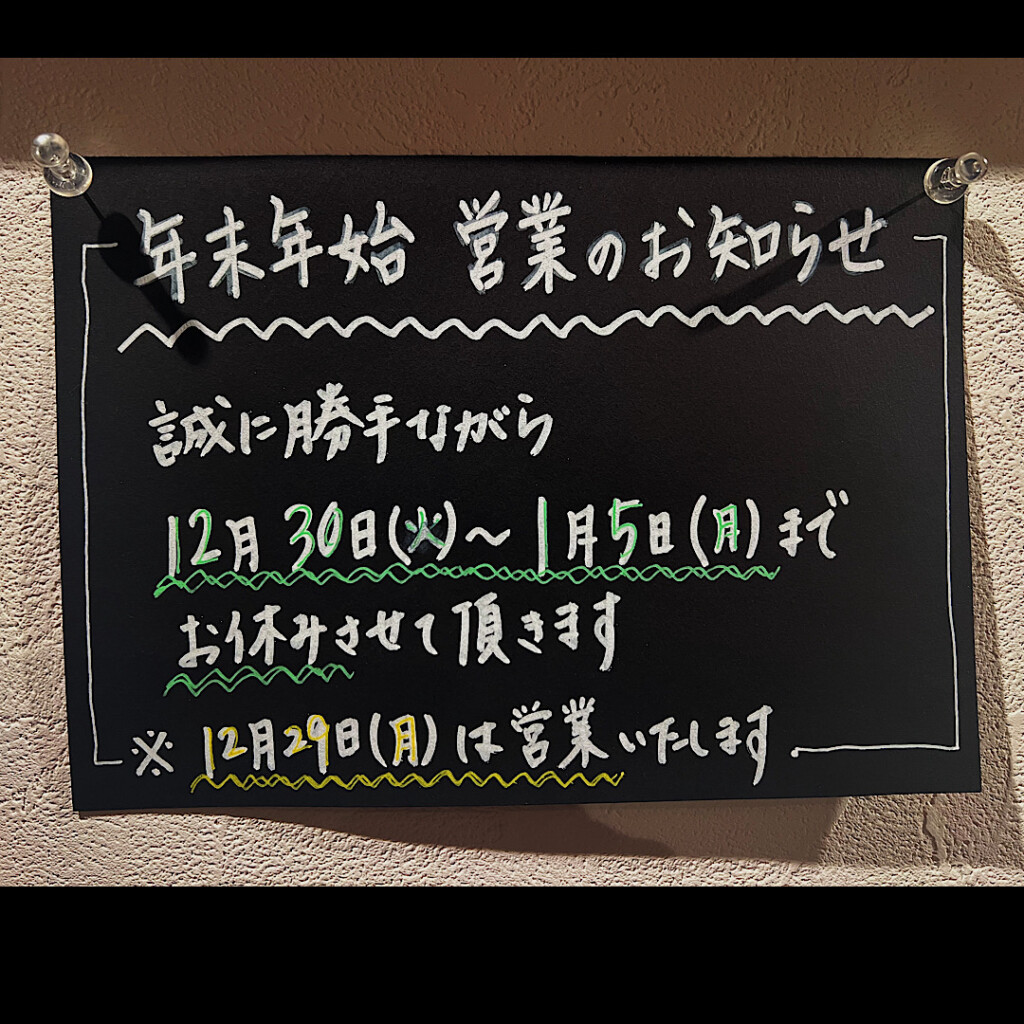 年末年始 営業のお知らせ
誠に勝手ながら
12月30日(火)～1月5日(月)まで
お休みさせて頂きます
※12月29日(月)は営業いたします.